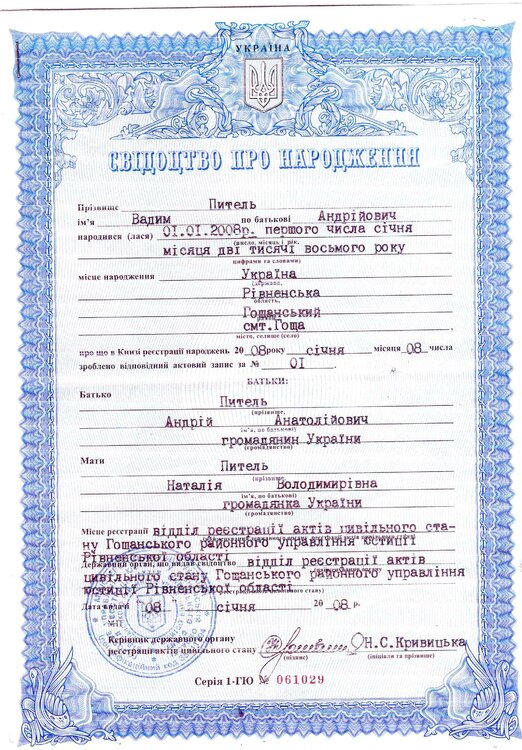 УКРАЇНА
СВІДОЦТВО ПРО НАРОДЖЕННЯ
Прізвище Питель
ім'я Вадим по батькові Андрійович
народився (лася) 01.01.2008р. першого числа січня
(число, місяць і рік,
місяця дві тисячі восьмого року
цифрами та словами)
місце народження Україна
(держава,
Рівненська
область,
Гощанський
район
смт.Гоща
місто, селище (село)
про що в Книзі реєстрації народжень 20 08 року січня місяця 08 числа
зроблено відповідний актовий запис за № 01
БАТЬКИ:
Батько Питель
(прізвище,
Андрій Анатолійович
ім'я, по батькові)
громадянин України
(громадянство)
Мати Питель
(прізвище
Наталія Володимирівна
ім'я, по батькові)
громадянка України
(громадянство)
Місце реєстрації відділ реєстрації актів цивільного ста-
ну Гощанського районного управління юстиції
Рівненської області
Державний орган, що видав свідоцтво відділ реєстрації актів
цивільного стану Гощанського районного управління
юстиції Рівненської області
Дата видачі 08 січня 20 08 р.
МП
Керівник державного органу
реєстрації актів цивільного стану Н.С.Кривицька
(підпис) (ініціали та прізвище)
Серія 1-ГЮ № 061029